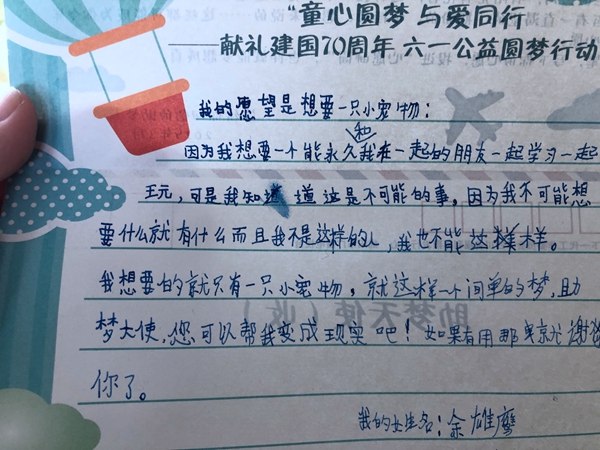 “童心圆梦 与爱同行
献礼建国70周年 六一公益圆梦行动
我的愿望是想要一只小宠物：
和
因为我想要一个能永久我在一起的朋友一起学习一起
王元，可是我知道 道这是不可能的事，因为我不可能想
要什么就有什么而且我不是这样的人，我也不能这样样。
我想要的就只有一只小宠物，就这样一个间单的梦，且力
梦大使，您可以帮我变成现实吧！如果有用那
你了。
我的女生名：余雄鹰
助梦天使（收）